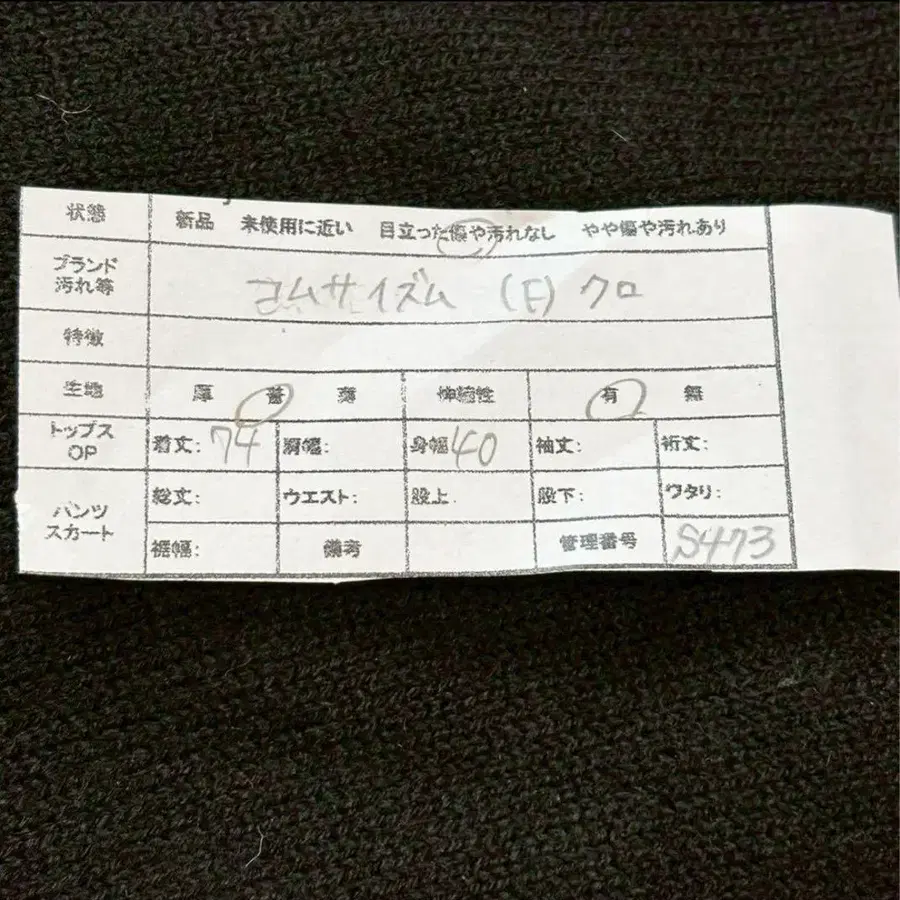 状態 新品 未使用に近い 目立った傷や汚れなし やや傷や汚れあり
ブランド
汚れ等 コムサイズム (F) クロ
特徴
生地 厚 普 薄 伸縮性 有 無
トップス
OP 着丈: 74 肩幅: 身幅 40 袖丈: 裄丈:
パンツ
スカート 総丈: ウエスト: 股上: 股下: ワタリ:
裾幅: 備考 管理番号 S473